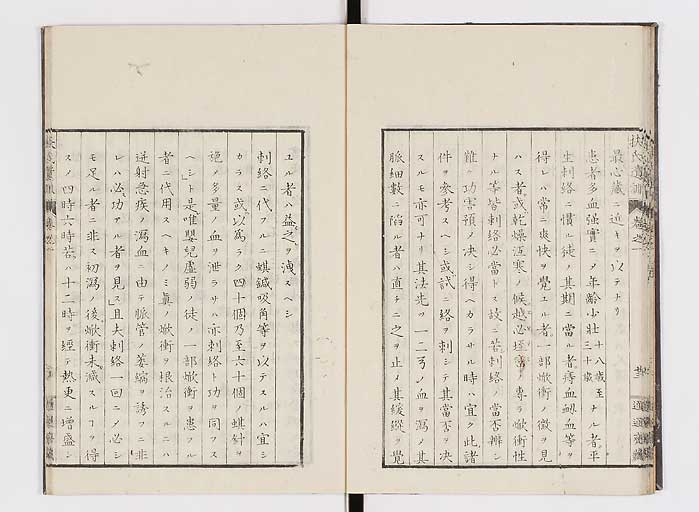 最心臓ニ近キヲ以テナリ
患者多血强實ニノ年齢少壮十八歳至三十歳ナル者平
生刺絡ニ慣ル徒ノ其期ニ當ル者痔血衂血等ヲ
得レハ常ニ爽快ヲ覺エル者一部焮衝ノ徴ヲ見
ハス者或乾燥冱寒ノ候越必垤ノ專ラ焮衝性
ナル等皆刺絡必當トス故ニ若刺絡ノ當否辨シ
難ク功害預ノ决シ得ヘカラサル時ハ宜ク此諸
件ヲ參考スヘシ或試ニ絡ヲ刺シテ其當否ヲ决
スルモ亦可ナリ其法先ツ一二弓ノ血ヲ瀉ノ其
脈細數ニ陷ル者ハ直チニ之ヲ止メ其緩縱ヲ覺
エル者ハ益之ヲ洩スヘシ
刺絡ニ代フルニ蜞鍼吸角等ヲ以テスルハ宜シ
カラス或以爲ラク四十個乃至六十個ノ蜞針ヲ
施メ多量ノ血ヲ泄ラサハ亦刺絡ト功ヲ同フス
ヘシト是唯嬰兒虚弱ノ徒ノ一部焮衝ヲ患フル
者ニ代用スヘキノミ眞ノ焮衝ヲ根治スルニハ
迸射急疾ノ瀉血ニ由テ脈管ノ萎縮ヲ誘フニ非
レハ必功アル者ヲ見ス且夫刺絡一回ニノ必シ
モ足ル者ニ非ス初瀉ノ後焮衝未滅スルヿヲ得
スノ四時六時若ハ十二時ヲ經テ熱更ニ增盛シ